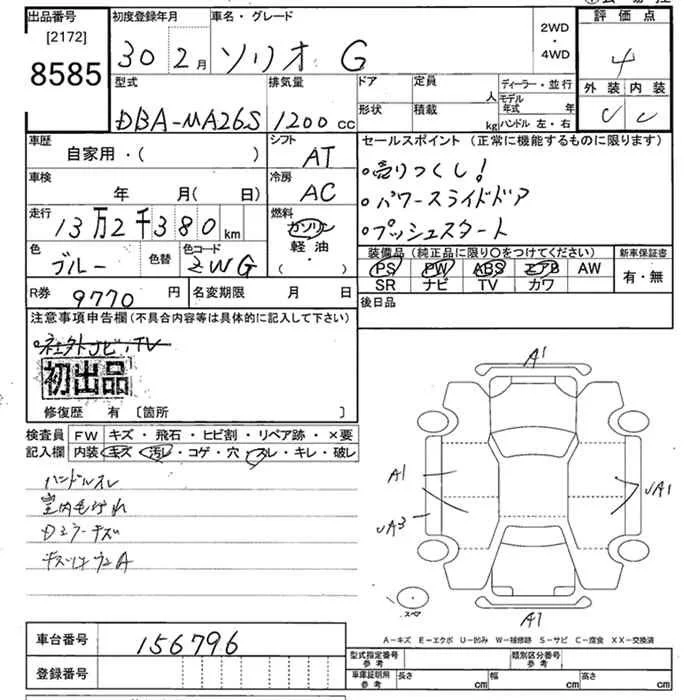 出品番号
[2172]
8585
初度登録年月
30 2月
車名・グレード
ソリオ G
2WD
・
4WD
評価点
4
外装 内装
型式
DBA-MA26S
排気量
1200 cc
ドア
定員
人
ディーラー・並行
形状
積載
kg
モデル年式 年
ハンドル 左・右
車歴
自家用・( )
シフト
AT
車検
年 月( 日)
冷房
AC
走行
13万2千380 km
燃料
ガソリン
軽油
( )
色
ブルー
色替
色コード
ZWG
R券
9770 円
名変期限 月 日
セールスポイント (正常に機能するものに限ります)
・売りつくし!
・パワースライドドア
・プッシュスタート
装備品 (純正品に限り〇をつけてください)
PS PW ABS エアB AW
SR ナビ TV カワ
新車保証書
有・無
後日品
注意事項申告欄(不具合内容等は具体的に記入して下さい)
初出品
修復歴 有 〔箇所 〕
検査員
記入欄
FW キズ・飛石・ヒビ割・リペア跡・×要
内装 キズ・汚レ・コゲ・穴・スレ・キレ・破レ
ハンドルスレ
室内毛汚れ
キズ
A
A1
A1
A3
A1
スペア
A1
A-キズ E-エクボ U-凹み W-補修跡 S-サビ C-腐食 XX-交換済
車台番号
156796
登録番号
型式指定番号
参考
類別区分番号
参考
車庫証明用
参考
長さ cm
幅 cm
高さ cm